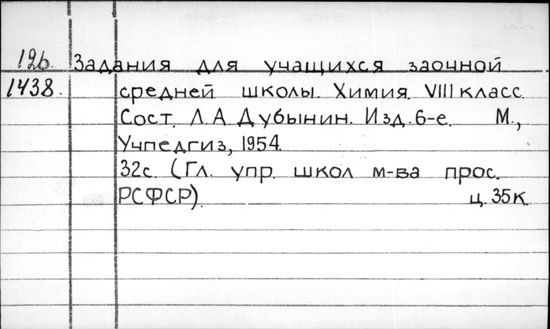 126. Задания для учащихся заочной
1438. средней школы. Химия. VIII класс.
Сост. Л.А. Дубынин. Изд. 6-е. М.,
Учпедгиз, 1954.
32с. (Гл. упр. школ м-ва прос.
РСФСР). ц. 35к.